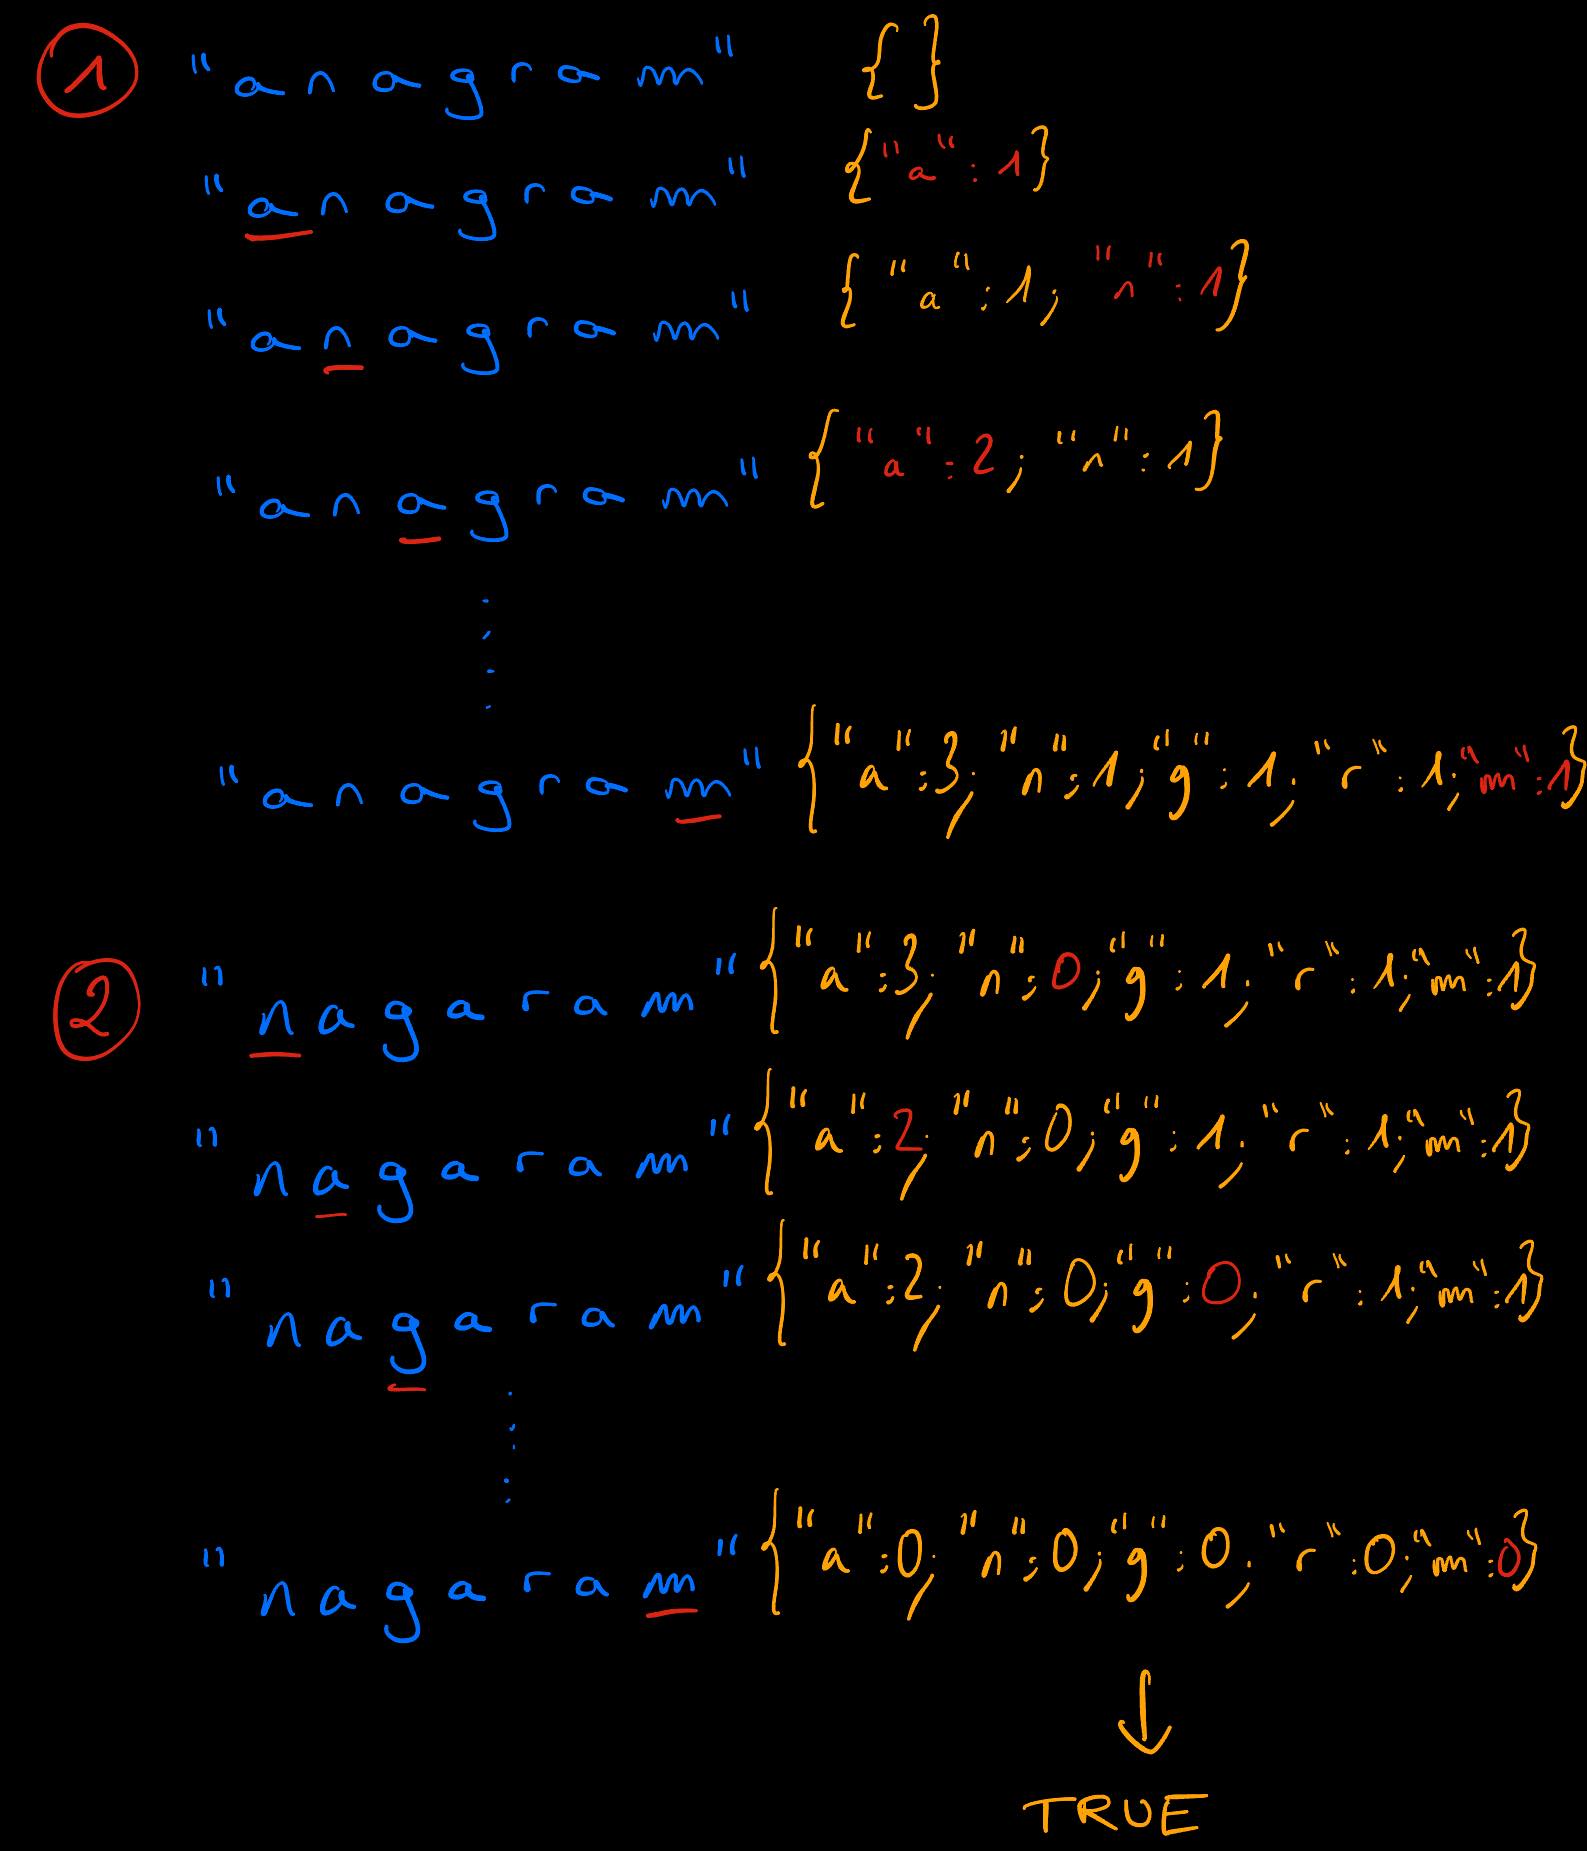 1 "anagram" {}
"anagram" {"a":1}
"anagram" {"a":1; "n":1}
"anagram" {"a":2; "n":1}
"anagram" {"a":3; "n":1; "g":1; "r":1; "m":1}
2 "nagaram" {"a":3; "n":0; "g":1; "r":1; "m":1}
"nagaram" {"a":2; "n":0; "g":1; "r":1; "m":1}
"nagaram" {"a":2; "n":0; "g":0; "r":1; "m":1}
"nagaram" {"a":0; "n":0; "g":0; "r":0; "m":0}
TRUE